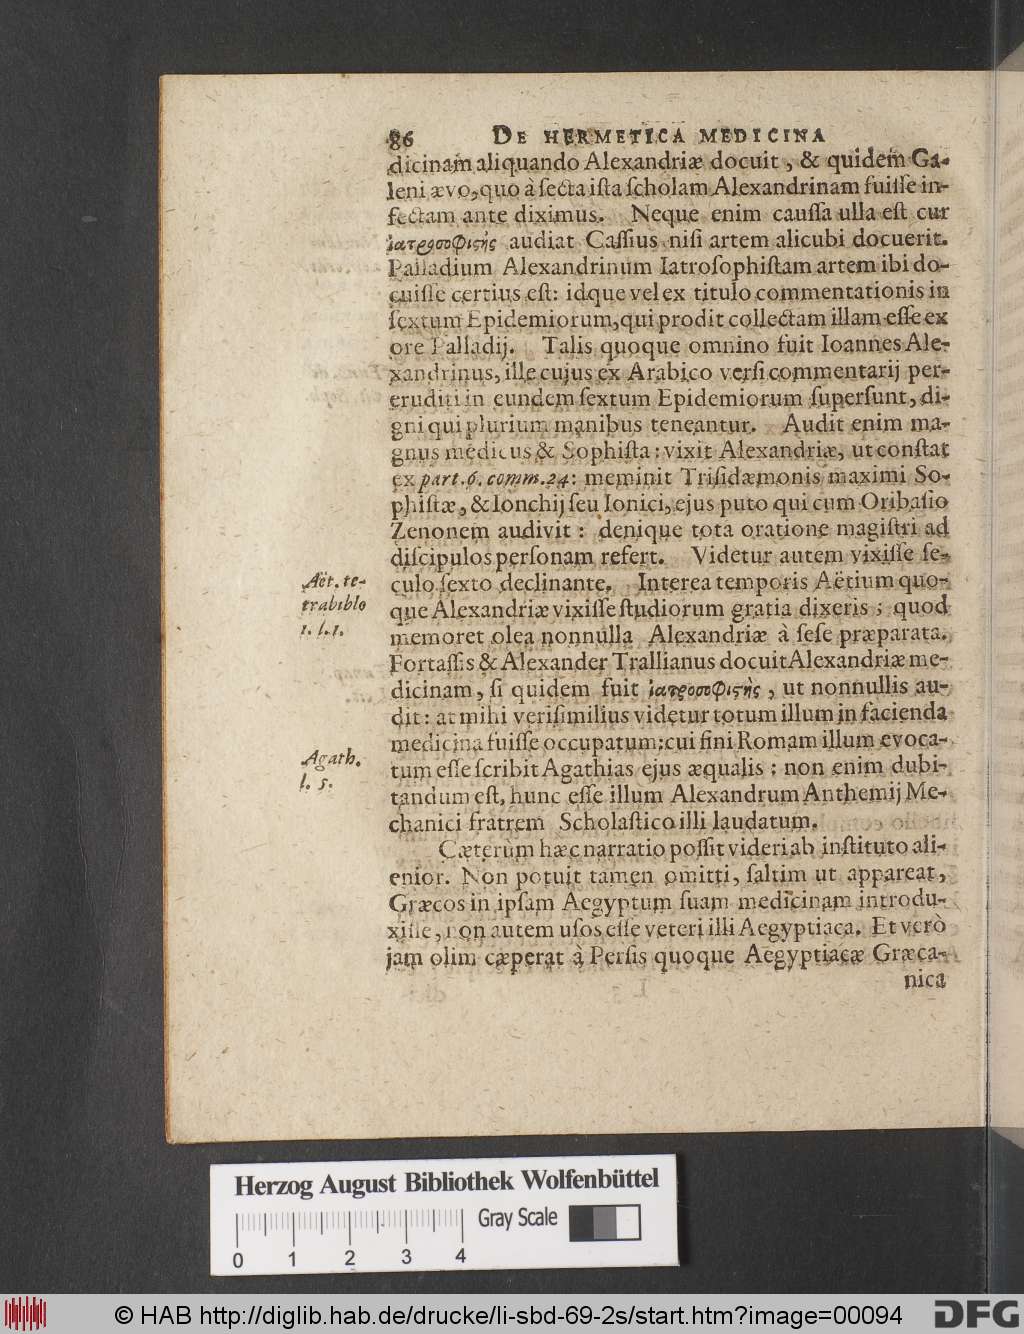 86 DE HERMETICA MEDICINA
dicinam aliquando Alexandriæ docuit, & quidem Ga-
leni ævo, quo à ſecta iſta ſcholam Alexandrinam fuiſſe in-
fectam ante diximus. Neque enim cauſſa ulla eſt cur
ἰατροσοφιςὴς audiat Caſſius niſi artem alicubi docuerit.
Palladium Alexandrinum Iatroſophiſtam artem ibi do-
cuiſſe certius eſt: idque vel ex titulo commentationis in
ſextum Epidemiorum, qui prodit collectam illam eſſe ex
ore Palladij. Talis quoque omnino fuit Ioannes Ale-
xandrinus, ille cujus ex Arabico verſi commentarij per-
eruditi in eundem ſextum Epidemiorum ſuperſunt, di-
gni qui plurium manibus teneantur. Audit enim ma-
gnus medicus & Sophiſta: vixit Alexandriæ, ut conſtat
ex part. 6. comm. 24: meminit Triſidæmonis maximi So-
phiſtæ, & Ionchij ſeu Ionici, ejus puto qui cum Oribaſio
Zenonem audivit: denique tota oratione magiſtri ad
diſcipulos perſonam refert. Videtur autem vixiſſe ſe-
culo ſexto declinante. Interea temporis Aëtium quo-
que Alexandriæ vixiſſe ſtudiorum gratia dixeris; quod
memoret olea nonnulla Alexandriæ à ſeſe præparata.
Fortaſſis & Alexander Trallianus docuit Alexandriæ me-
dicinam, ſi quidem fuit ἰατροσοφιςὴς, ut nonnullis au-
dit: at mihi veriſimilius videtur totum illum in facienda
medicina fuiſſe occupatum; cui fini Romam illum evoca-
tum eſſe ſcribit Agathias ejus æqualis; non enim dubi-
tandum eſt, hunc eſſe illum Alexandrum Anthemij Me-
chanici fratrem Scholaſtico illi laudatum.
Cæterùm hæc narratio poſſit videri ab inſtituto ali-
enior. Non potuit tamen omitti, ſaltim ut appareat,
Græcos in ipſam Aegyptum ſuam medicinam introdu-
xiſſe, non autem uſos eſſe veteri illi Aegyptiaca. Et verò
jam olim cæperat à Perſis quoque Aegyptiacæ Græca-
nica
Aët. te-
trabiblo
1. l. 1.
Agath.
l. 5.
Herzog August Bibliothek Wolfenbüttel
Gray Scale
0 1 2 3 4
© HAB http://diglib.hab.de/drucke/li-sbd-69-2s/start.htm?image=00094
DFG